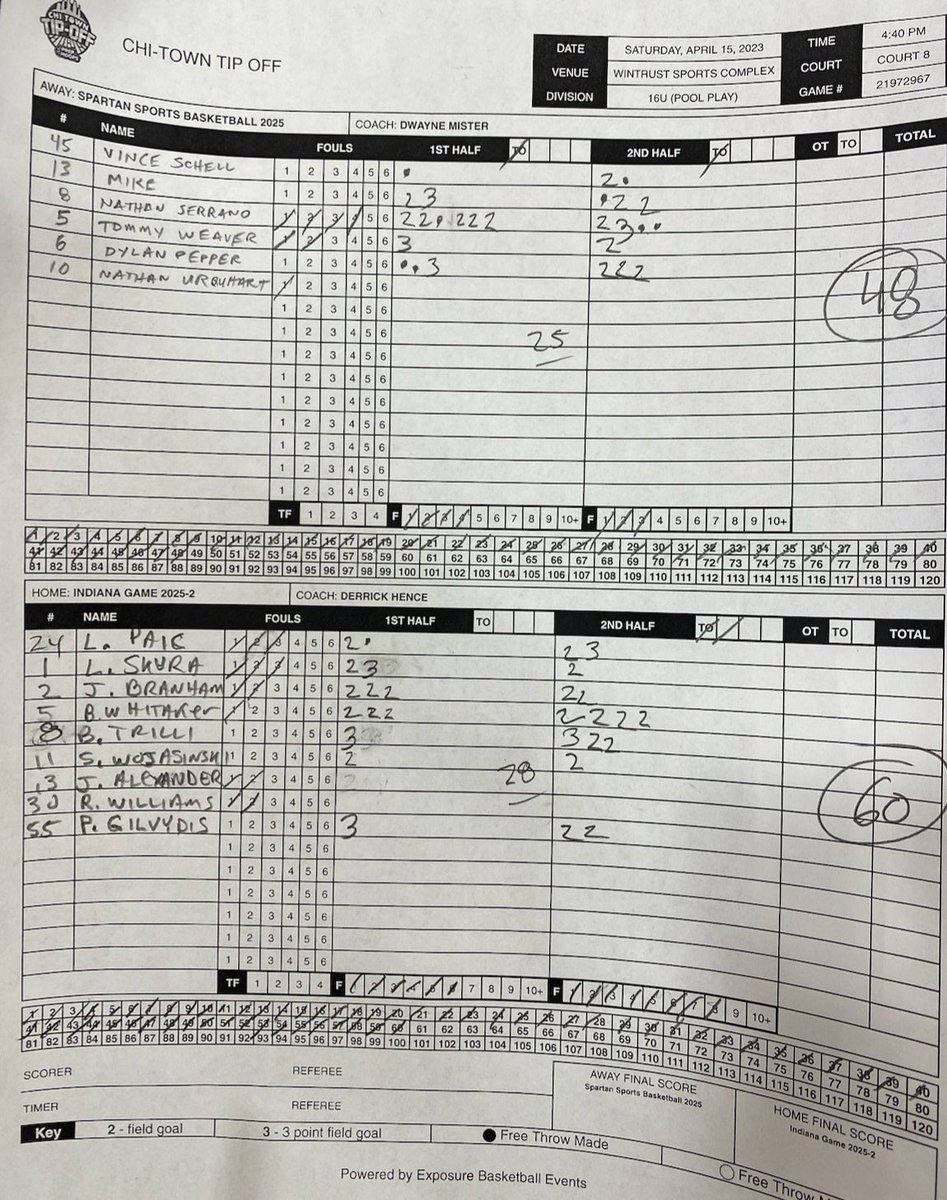 CHI TOWN TIP-OFF
CHI-TOWN TIP OFF
DATE SATURDAY, APRIL 15, 2023 TIME 4:40 PM
VENUE WINTRUST SPORTS COMPLEX COURT COURT 8
DIVISION 16U (POOL PLAY) GAME # 21972967
AWAY: SPARTAN SPORTS BASKETBALL 2025 COACH: DWAYNE MISTER
# NAME FOULS 1ST HALF TO 2ND HALF TO OT TO TOTAL
45 VINCE SCHELL 1 2 3 4 5 6 • 2•
13 MIKE 1 2 3 4 5 6 23 •22
8 NATHAN SERRANO 1 2 3 4 5 6 22•222 23••
5 TOMMY WEAVER 1 2 3 4 5 6 3 2
6 DYLAN PEPPER 1 2 3 4 5 6 ••3 222
10 NATHAN URQUHART 1 2 3 4 5 6
48
1 2 3 4 5 6
1 2 3 4 5 6
25
1 2 3 4 5 6
1 2 3 4 5 6
1 2 3 4 5 6
1 2 3 4 5 6
1 2 3 4 5 6
1 2 3 4 5 6
1 2 3 4 5 6
TF 1 2 3 4 F 1 2 3 4 5 6 7 8 9 10+ F 1 2 3 4 5 6 7 8 9 10+
1 2 3 4 5 6 7 8 9 10 11 12 13 14 15 16 17 18 19 20 21 22 23 24 25 26 27 28 29 30 31 32 33 34 35 36 37 38 39 40
41 42 43 44 45 46 47 48 49 50 51 52 53 54 55 56 57 58 59 60 61 62 63 64 65 66 67 68 69 70 71 72 73 74 75 76 77 78 79 80
81 82 83 84 85 86 87 88 89 90 91 92 93 94 95 96 97 98 99 100 101 102 103 104 105 106 107 108 109 110 111 112 113 114 115 116 117 118 119 120
HOME: INDIANA GAME 2025-2 COACH: DERRICK HENCE
# NAME FOULS 1ST HALF TO 2ND HALF TO OT TO TOTAL
24 L. PAIC 1 2 3 4 5 6 2• 23
1 L. SKURA 1 2 3 4 5 6 23 2
2 J. BRANHAM 1 2 3 4 5 6 222 22
5 B. WHITAKER 1 2 3 4 5 6 222 2222
8 B. TRILLI 1 2 3 4 5 6 3 322
11 S. WOJASINSKI 1 2 3 4 5 6 2 2
13 J. ALEXANDER 1 2 3 4 5 6 28
30 R. WILLIAMS 1 2 3 4 5 6 60
55 P. GILVYDIS 1 2 3 4 5 6 3 22
1 2 3 4 5 6
1 2 3 4 5 6
1 2 3 4 5 6
1 2 3 4 5 6
1 2 3 4 5 6
1 2 3 4 5 6
TF 1 2 3 4 F 1 2 3 4 5 6 7 8 9 10+ F 1 2 3 4 5 6 7 8 9 10+
1 2 3 4 5 6 7 8 9 10 11 12 13 14 15 16 17 18 19 20 21 22 23 24 25 26 27 28 29 30 31 32 33 34 35 36 37 38 39 40
41 42 43 44 45 46 47 48 49 50 51 52 53 54 55 56 57 58 59 60 61 62 63 64 65 66 67 68 69 70 71 72 73 74 75 76 77 78 79 80
81 82 83 84 85 86 87 88 89 90 91 92 93 94 95 96 97 98 99 100 101 102 103 104 105 106 107 108 109 110 111 112 113 114 115 116 117 118 119 120
SCORER REFEREE AWAY FINAL SCORE
Spartan Sports Basketball 2025
TIMER REFEREE HOME FINAL SCORE
Indiana Game 2025-2
Key 2 - field goal 3 - 3 point field goal Free Throw Made Free Throw
Powered by Exposure Basketball Events